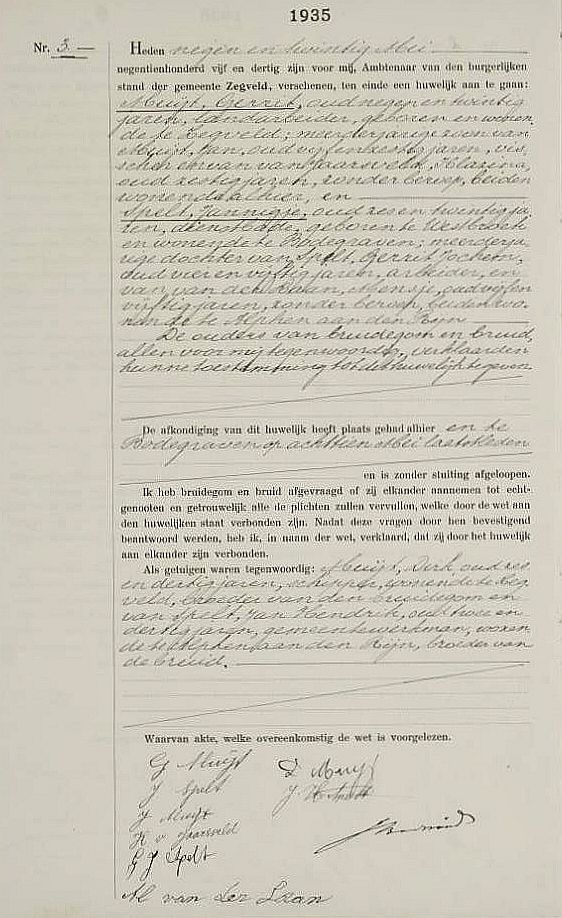 1935
Nr. 3.
Heden negen en twintig Mei
negentienhonderd vijf en dertig zijn voor mij, Ambtenaar van den burgerlijken
stand der gemeente Zegveld, verschenen, ten einde een huwelijk aan te gaan:
Muijt, Gerrit, oud negen en twintig
jaren, landarbeider, geboren en wonen,
de te Zegveld; meerderjarige zoon van
Muijt, Jan, oud vijf en zestig jaren, vis,
scher en van van Jaarsveld, Klazina,
oud zestig jaren, zonder beroep, beiden
wonende alhier, en
Spelt, Jannigje, oud zes en twintig ja,
ren, dienstbode, geboren te Westbroek
en wonende te Bodegraven; meerderja,
rige dochter van Spelt, Gerrit Jochem,
oud vier en vijftig jaren, arbeider, en
van van der Laan, Mensje, oud vijf en
vijftig jaren, zonder beroep, beiden wo,
nende te Alphen aan den Rijn
De ouders van bruidegom en bruid,
allen voor mij tegenwoordig, verklaarden
hunne toestemming tot dit huwelijk te geven.
De afkondiging van dit huwelijk heeft plaats gehad alhier en te
Bodegraven op achttien Mei laatstleden
en is zonder stuiting afgeloopen.
Ik heb bruidegom en bruid afgevraagd of zij elkander aannemen tot echt-
genooten en getrouwelijk alle de plichten zullen vervullen, welke door de wet aan
den huwelijken staat verbonden zijn. Nadat deze vragen door hen bevestigend
beantwoord werden, heb ik, in naam der wet, verklaard, dat zij door het huwelijk
aan elkander zijn verbonden.
Als getuigen waren tegenwoordig: Muijt, Dirk oud zes
en dertig jaren, schipper, wonende te Zeg,
veld, broeder van den bruidegom en
van Spelt, Jan Hendrik, oud twee en
dertig jaren, gemeentewerkman, wonen,
de te Alphen aan den Rijn, broeder van
de bruid.
Waarvan akte, welke overeenkomstig de wet is voorgelezen.
G Muijt
D Muijt
J Spelt
J. H. Spelt
J Muijt
K v Jaarsveld
G J Spelt
M van der Laan